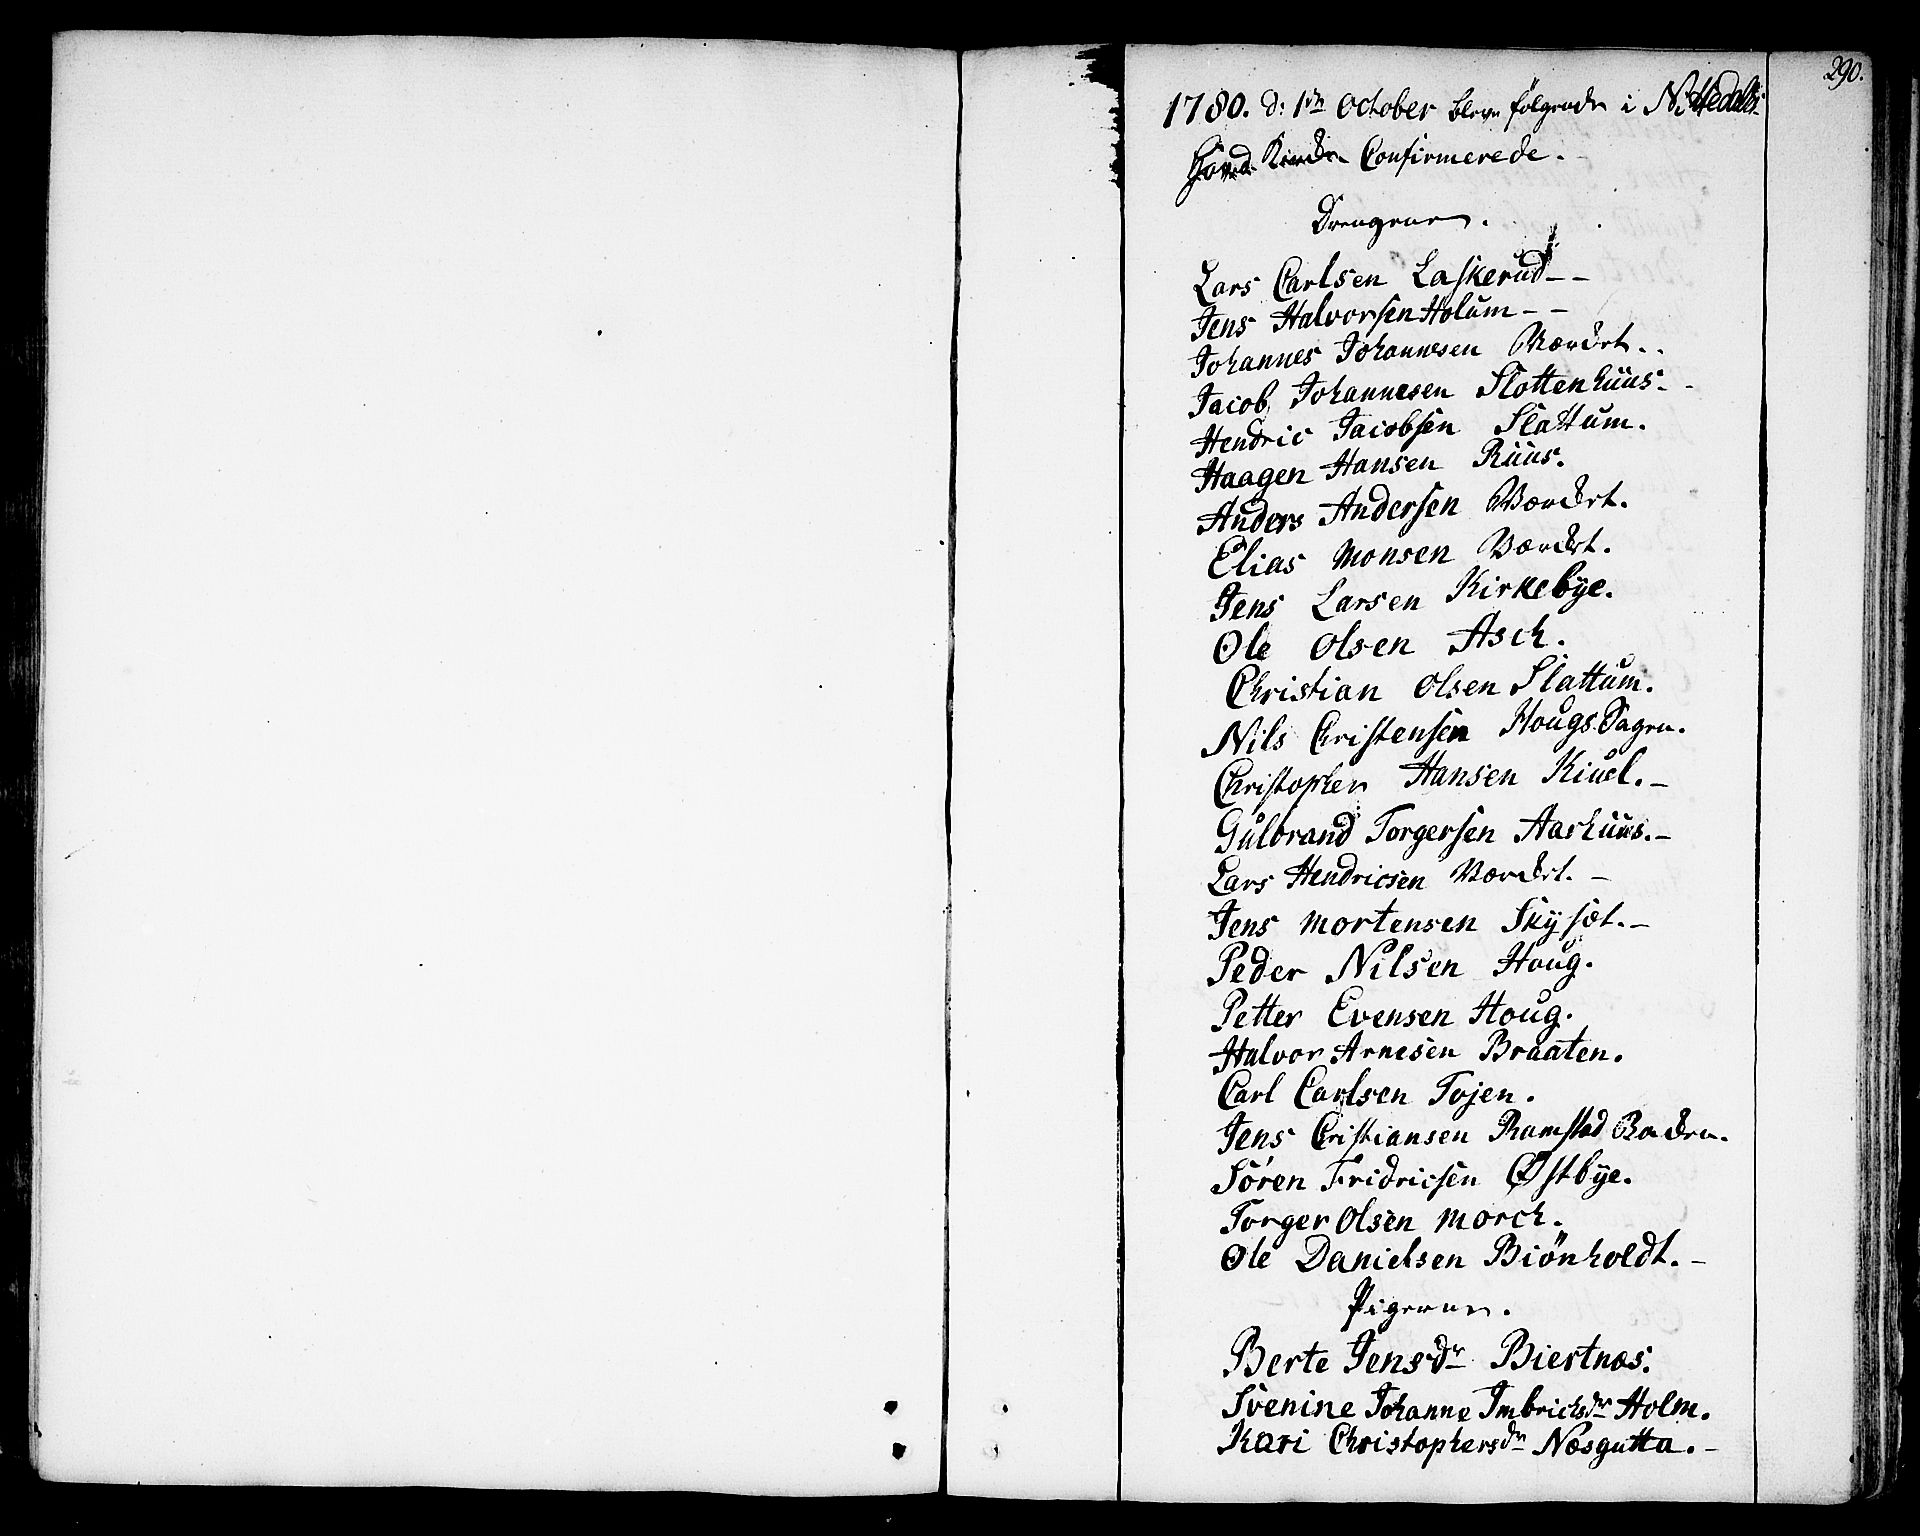 290.
1780. d: 1ste October bleve følgende i Nittedals
Hoved Kirke Confirmerede.
Drengene.
Lars Carlsen Laskerud
Jens Halvorsen Holum
Johannes Johannesen Værket..
Jacob Johannesen Slottenhuus.
Hendric Jacobsen Slattum.
Haagen Hansen Ruus.
Anders Andersen Værket.
Elias Monsen Værket.
Jens Larsen Kirkebye.
Ole Olsen Asch.
Christian Olsen Slattum.
Nils Christensen Hougs Sagen.
Christopher Hansen Kiuel.
Gulbrand Torgersen Aashuus.
Lars Hendricsen Værket.
Jens Mortensen Skysæt.
Peder Nilsen Houg.
Petter Evensen Houg.
Halvor Arnesen Braaten.
Carl Carlsen Tøjen.
Jens Cristiansen Ramstad
Sören Fridricsen Østbye.
Torger Olsen Morch.
Ole Danielsen Biönholdt.
Pigerne.
Berte Jensdr Biertnæs.
Svenine Johanne Imbrichsdr Holm.
Kari Christophersdr Næsgutta.